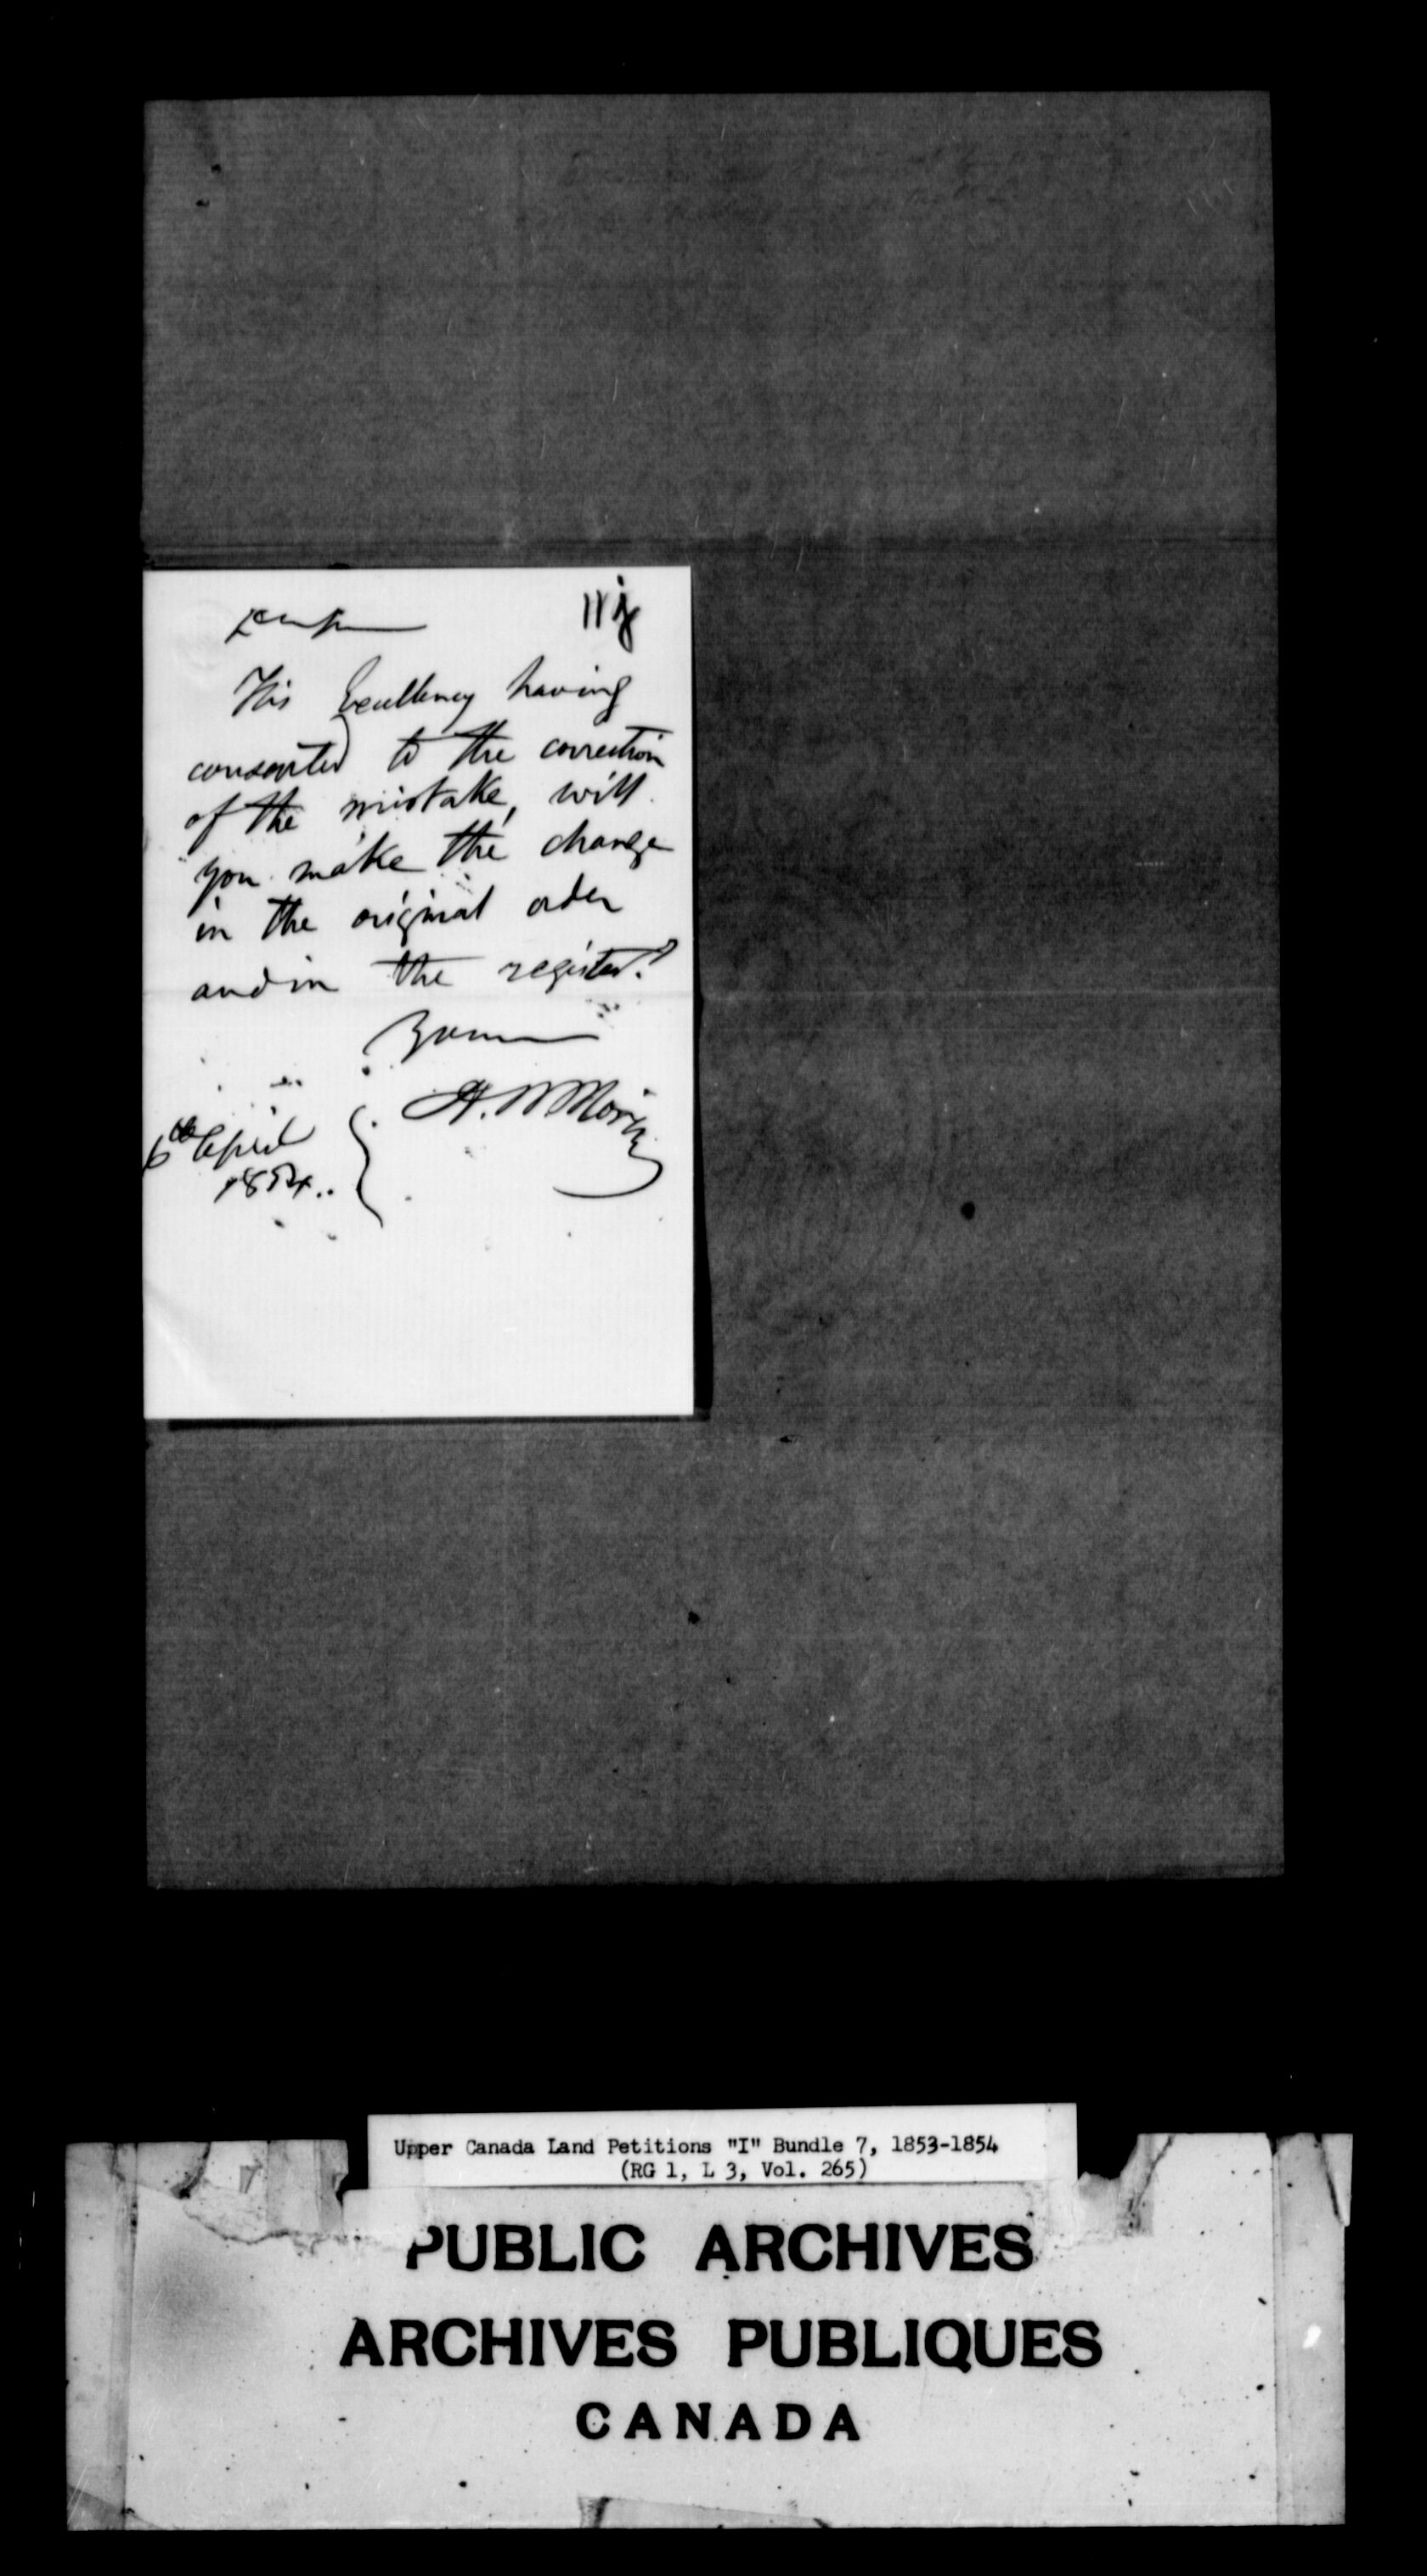 11j
His Excellency having
consented to the correction
of the mistake, will
you make the change
in the original order
and in the register?
Yours
A. N. Morin
6th April
1854..
Upper Canada Land Petitions "I" Bundle 7, 1853-1854
(RG 1, L 3, Vol. 265)
PUBLIC ARCHIVES
ARCHIVES PUBLIQUES
CANADA